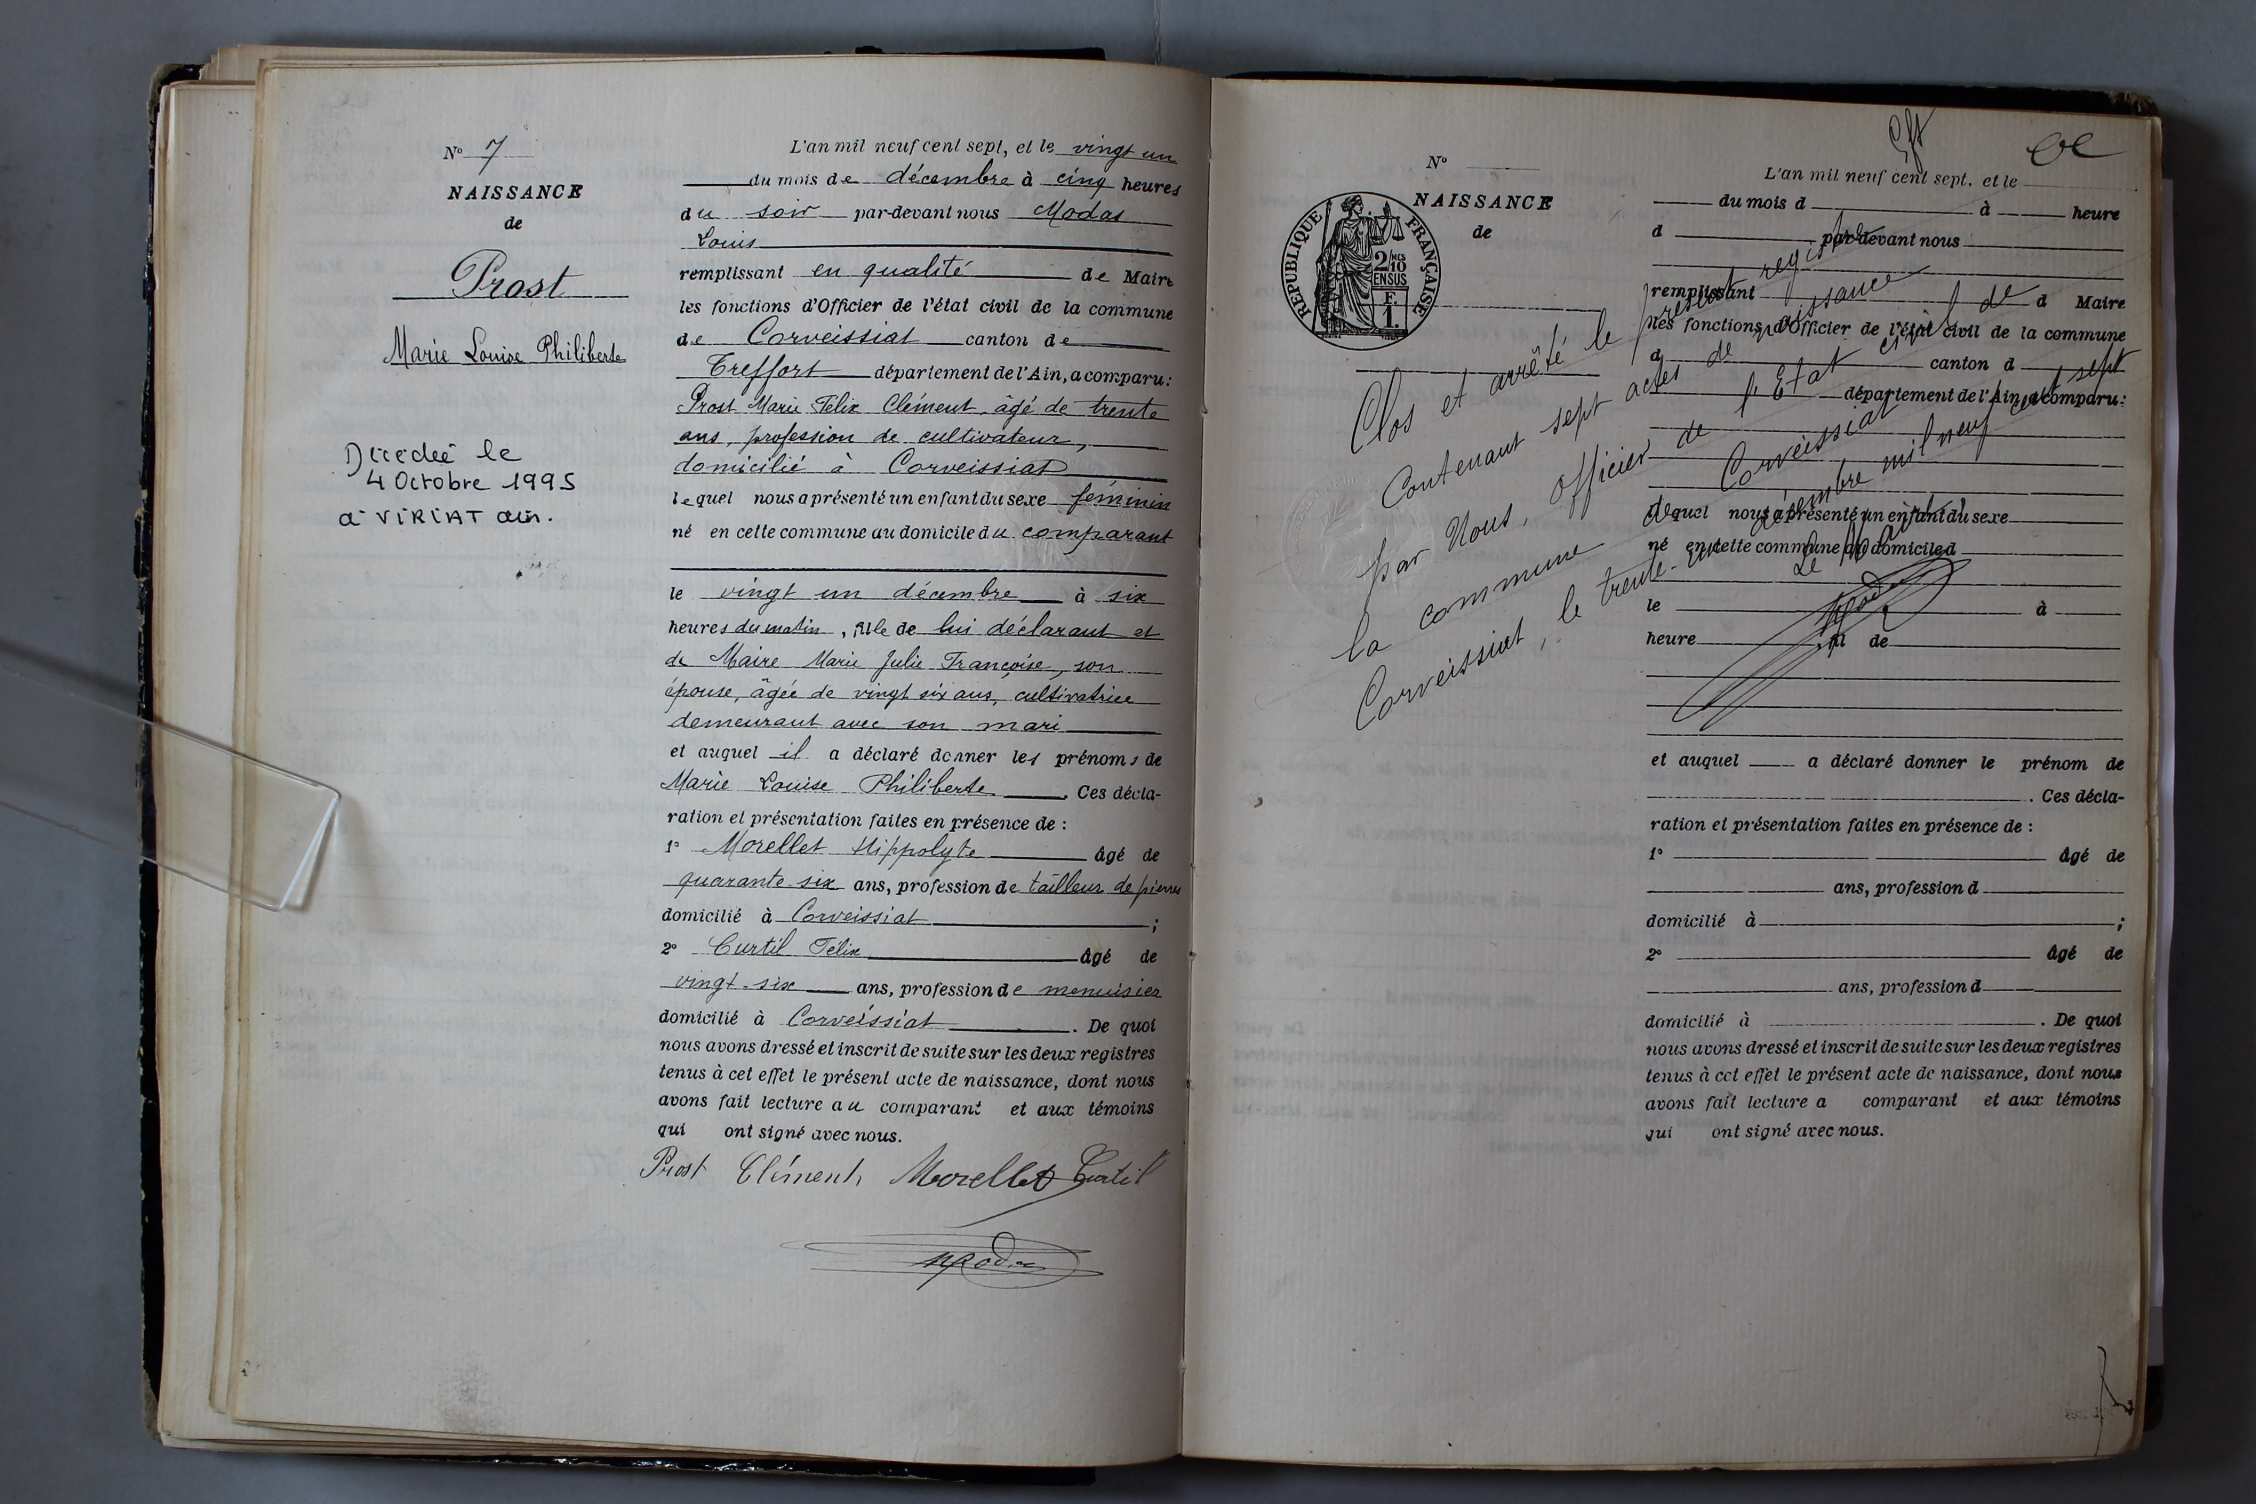 N° 7
NAISSANCE
de
Prost
Marie Louise Philiberte
Décédée le
4 Octobre 1995
à VIRIAT Ain.
L'an mil neuf cent sept, et le vingt un
du mois de décembre à cinq heures
du soir par-devant nous Modas
Louis
remplissant en qualité de Maire
les fonctions d'Officier de l'état civil de la commune
de Corveissiat canton de
Treffort département de l'Ain, a comparu:
Prost Marie Félix Clément, âgé de trente
ans, profession de cultivateur,
domicilié à Corveissiat
lequel nous a présenté un enfant du sexe féminin
né en cette commune au domicile du comparant
le vingt un décembre à six
heures du matin, fille de lui déclarant et
de Maire Marie Julie Françoise, son
épouse, âgée de vingt six ans, cultivatrice
demeurant avec son mari
et auquel il a déclaré donner les prénoms de
Marie Louise Philiberte. Ces décla-
ration et présentation faites en présence de :
1° Morellet Hippolyte âgé de
quarante-six ans, profession de tailleur de pierres
domicilié à Corveissiat ;
2° Curtil Félix âgé de
vingt-six ans, profession de menuisier
domicilié à Corveissiat. De quoi
nous avons dressé et inscrit de suite sur les deux registres
tenus à cet effet le présent acte de naissance, dont nous
avons fait lecture au comparant et aux témoins
qui ont signé avec nous.
Prost Clément Morellet Curtil
N°
NAISSANCE
de
RÉPUBLIQUE FRANÇAISE
2/10 MES
EN SUS
F.
1.
L'an mil neuf cent sept, et le
du mois d à heure
d par-devant nous
remplissant d Maire
les fonctions d'Officier de l'état civil de la commune
d canton d
département de l'Ain, a comparu:
lequel nous a présenté un enfant du sexe
né en cette commune au domicile d
le à
heure , fil de
et auquel a déclaré donner le prénom de
. Ces décla-
ration et présentation faites en présence de :
1° âgé de
ans, profession d
domicilié à ;
2° âgé de
ans, profession d
domicilié à . De quoi
nous avons dressé et inscrit de suite sur les deux registres
tenus à cet effet le présent acte de naissance, dont nous
avons fait lecture a comparant et aux témoins
qui ont signé avec nous.
Clos et arrêté le présent registre
Contenant sept actes de naissance
par Nous, officier de l'Etat civil de
la commune de Corveissiat
Corveissiat, le trente-un décembre mil neuf cent sept
Le Maire